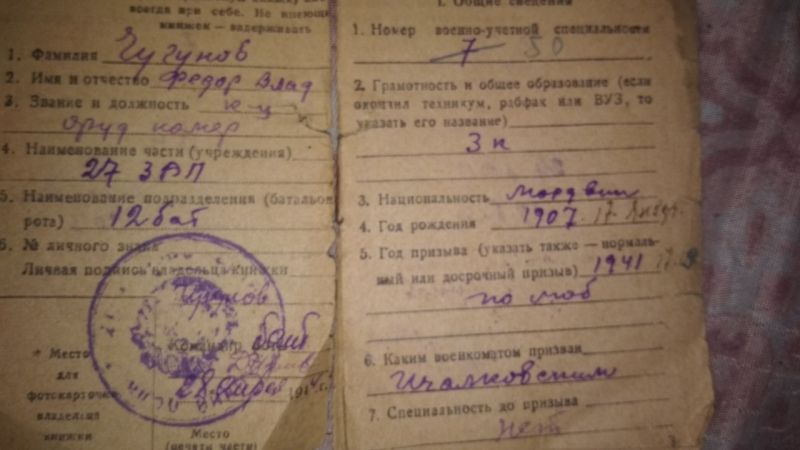 всегда при себе. Не имеющ
книжек — задерживать
1. Фамилия Чугунов
2. Имя и отчество Федор Влад
3. Звание и должность к-ц
оруд номер
4. Наименование части (учреждения)
27 ЗАП
5. Наименование подразделения (батальон
рота) 12 бат
6. № личного знака
Личная подпись владельца книжки
Чугунов
Командир
Место
для
фотокарточки
владельца
книжки
28 194
Место
(печати части)
I. Общие сведения
1. Номер военно-учетной специальности
7 50
2. Грамотность и общее образование (если
окончил техникум, рабфак или ВУЗ, то
указать его название)
3 к
3. Национальность мордвин
4. Год рождения 1907 17 Январ
5. Год призыва (указать также — нормаль-
ный или досрочный призыв) 1941
по моб
6. Каким военкоматом призван
Ичалковским
7. Специальность до призыва
нет